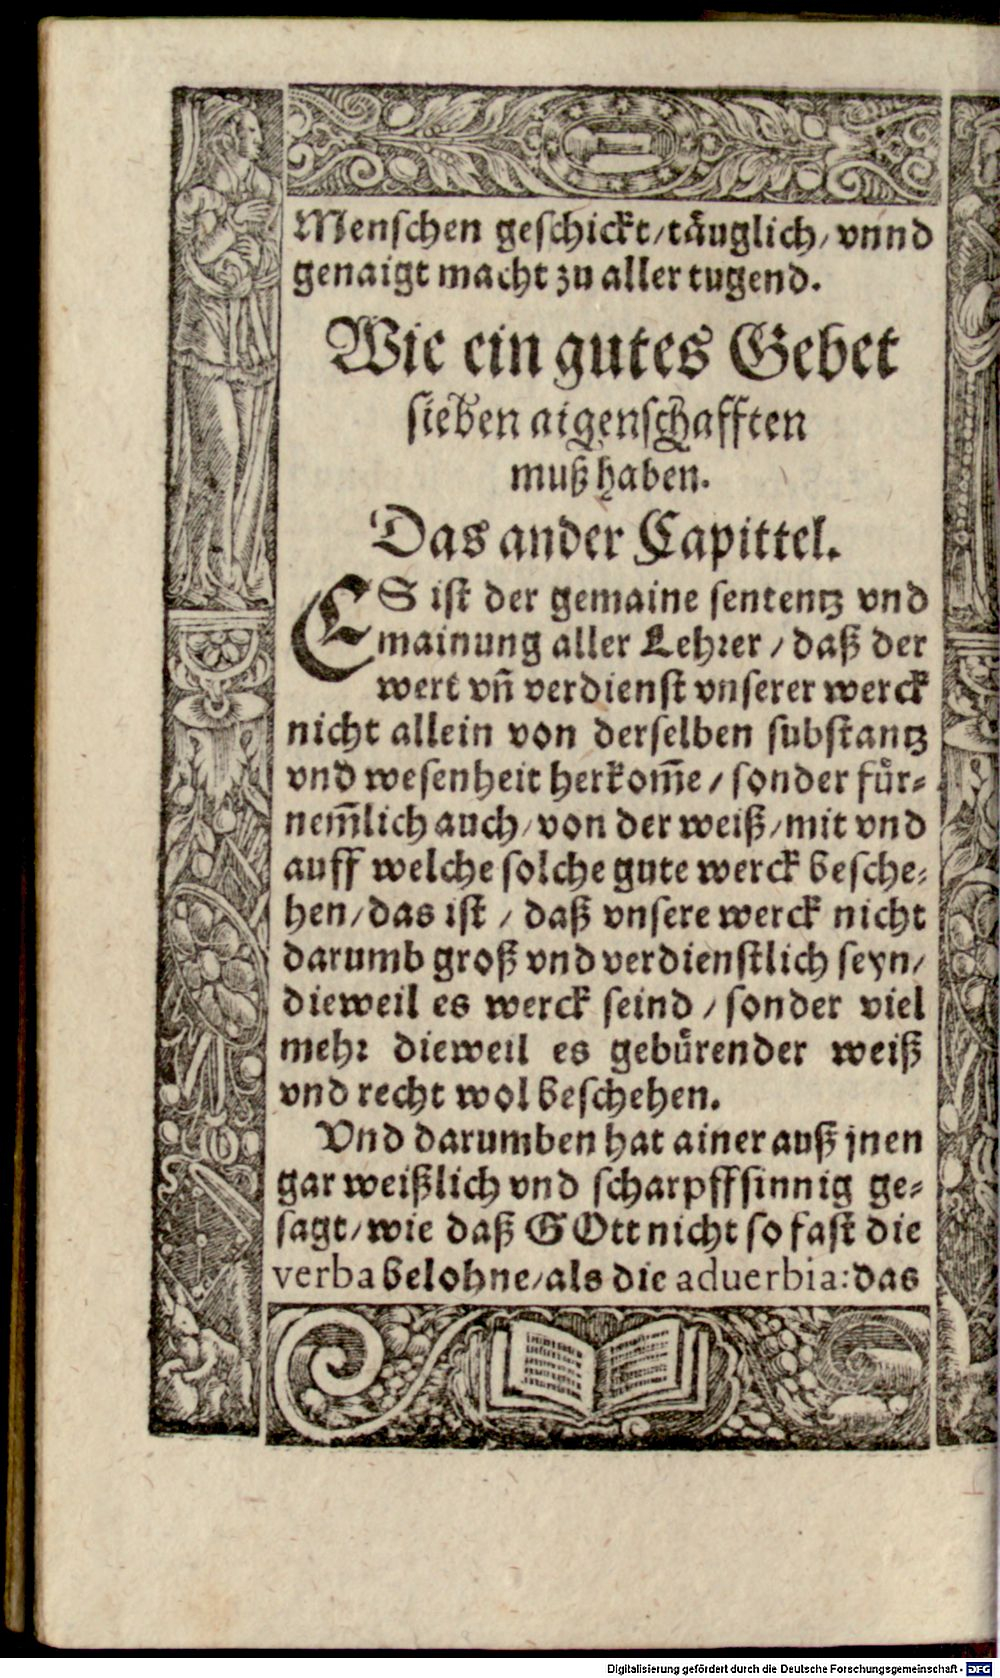 Menschen geschickt/täuglich/ vnnd
genaigt macht zu aller tugend.
Wie ein gutes Gebet
sieben aigenschafften
muß haben.
Das ander Capittel.
ES ist der gemaine sententz vnd
mainung aller Lehrer / daß der
wert vñ verdienst vnserer werck
nicht allein von derselben substantz
vnd wesenheit herkom̃e / sonder für-
nem̃lich auch/ von der weiß/ mit vnd
auff welche solche gute werck besche-
hen/ das ist / daß vnsere werck nicht
darumb groß vnd verdienstlich seyn/
dieweil es werck seind / sonder viel
mehr dieweil es gebürender weiß
vnd recht wol beschehen.
Vnd darumben hat ainer auß jnen
gar weißlich vnd scharpffsinnig ge-
sagt/ wie daß GOtt nicht so fast die
verba belohne/ als die aduerbia: das
Digitalisierung gefördert durch die Deutsche Forschungsgemeinschaft - DFG